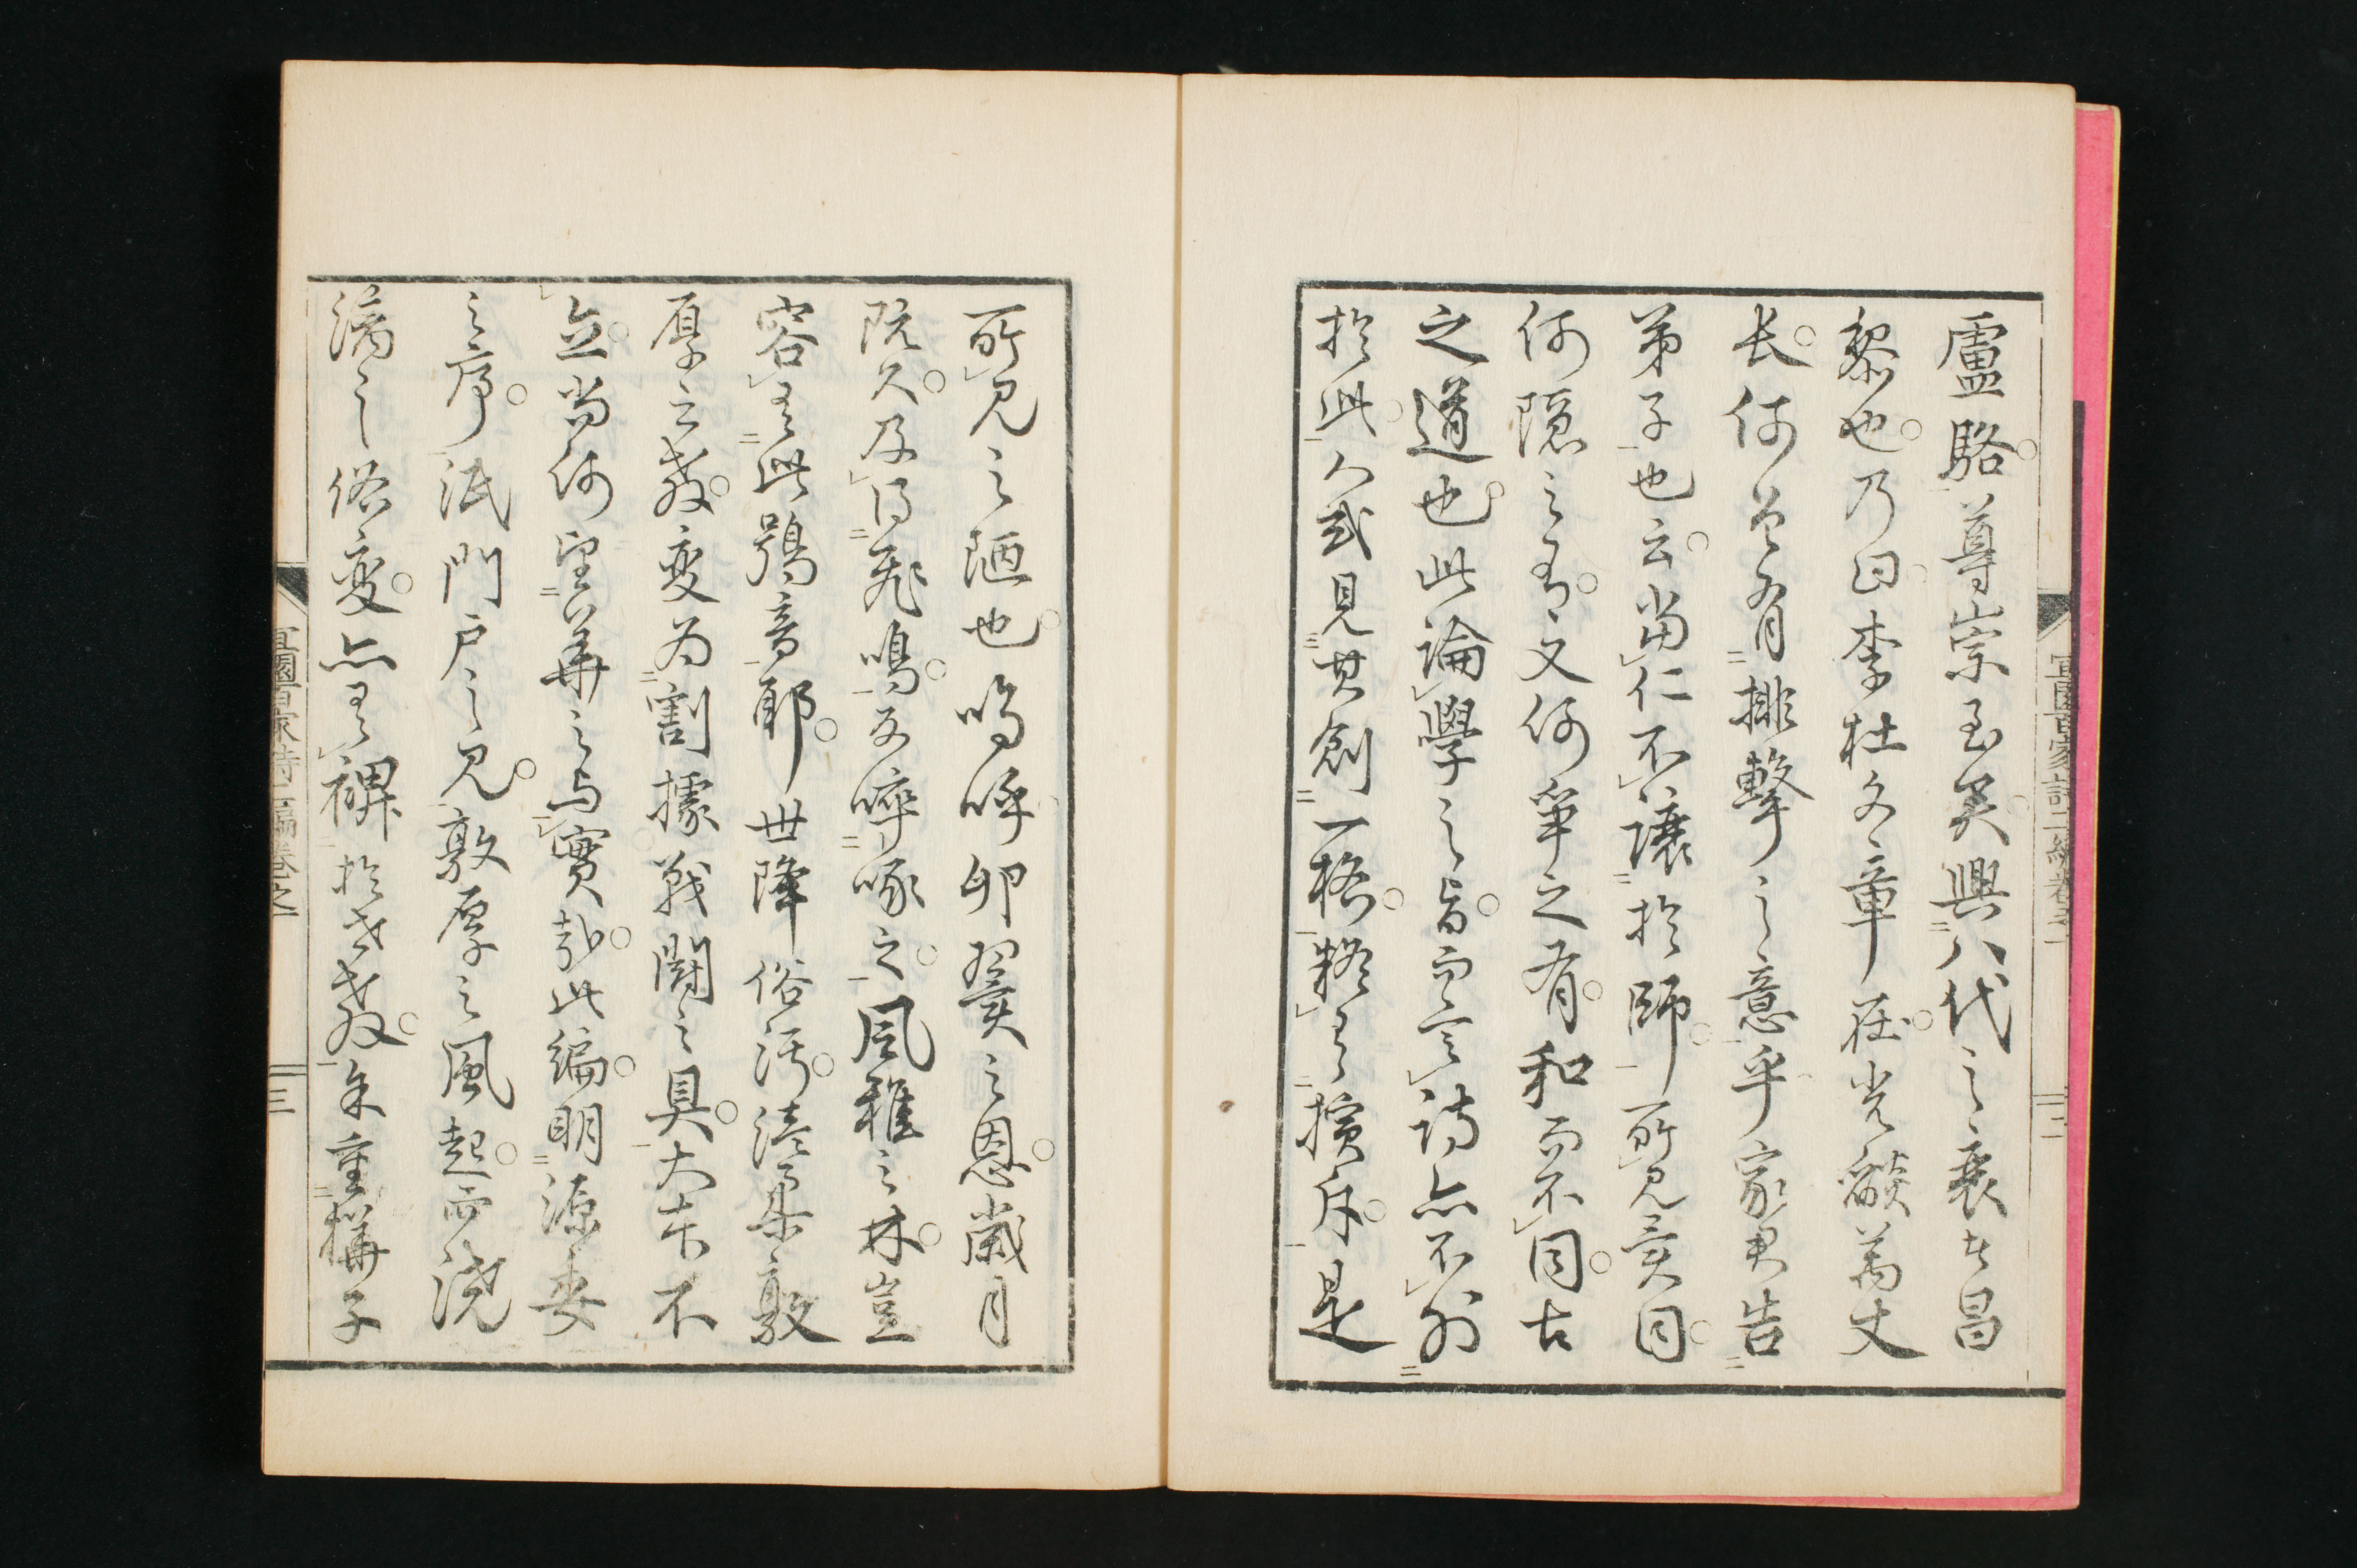 盧駱尊崇至矣興八代之衰者昌
黎也乃曰李杜文章在光燄萬丈
長何曾有排擊之意乎家君告
弟子也云當仁不讓於師所見異同
何隱之有又何爭之有和而不同古
之道也此論學之旨而言詩亦不外
於此人或見其創一格輒擯斥是
宜園百家詩二編卷之一
二
所見之陋也嗚呼卵翼之恩歲月
既久及得飛鳴反啐啄之風雅之林豈
容此鴞音耶世降俗汚澆季敦
厚之教變為割據戰鬪之具大本不
立尚何望華之与實哉此編明源委
之序泯門戶之見敦厚之風起而澆
漓之俗変亦裨於世教余重構子
宜園百家詩二編卷之一
三